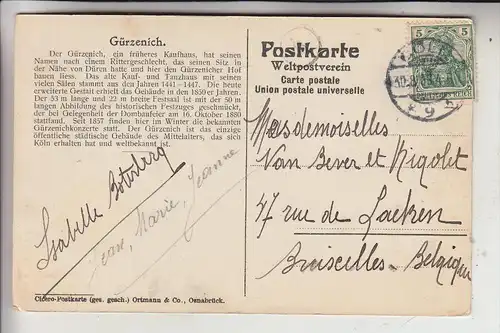 Gürzenich.
Der Gürzenich, ein früheres Kaufhaus, hat seinen
Namen nach einem Rittergeschlecht, das seinen Sitz in
der Nähe von Düren hatte und hier den Gürzenicher Hof
bauen liess. Das alte Kauf- und Tanzhaus mit seinen
vielen Sälen stammt aus den Jahren 1441-1447. Die heute
erweiterte Gestalt erhielt das Gebäude in den 1850er Jahren.
Der 53 m lange und 22 m breite Festsaal ist mit der 50 m
langen Abbildung des historischen Festzuges geschmückt,
der bei Gelegenheit der Dombaufeier am 16. Oktober 1880
stattfand. Seit 1857 finden hier im Winter die bekannten
Gürzenichkonzerte statt. Der Gürzenich ist das einzige
öffentliche städtische Gebäude des Mittelalters, das sich
Köln erhalten hat und weltbekannt ist.
Postkarte
Weltpostverein
Carte postale
Union postale universelle
5 5
Mesdemoiselles
Van Bever et Nigolet
47 rue de Laeken
Bruxelles - Belgique
Isabelle
Jean, Marie, Jeanne
Cicero-Postkarte (ges. gesch.) Ortmann & Co., Osnabrück.